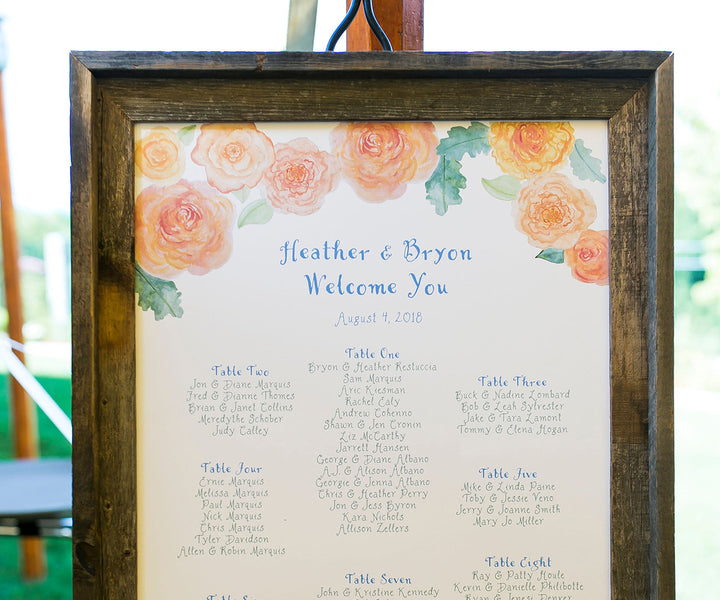 Heather & Bryon
Welcome You
August 4, 2018
Table One
Bryon & Heather Restuccia
Sam Marquis
Aric Riesman
Rachel Ealy
Andrew Cohenno
Shawn & Jen Cronin
Liz McCarthy
Jarrett Hansen
George & Diane Albano
A.J. & Alison Albano
Georgie & Jenna Albano
Chris & Heather Perry
Jon & Jess Byron
Kara Nichols
Allison Zellers
Table Two
Jon & Diane Marquis
Fred & Dianne Thomes
Brian & Janet Collins
Meredythe Schober
Judy Talley
Table Three
Buck & Nadine Lombard
Bob & Leah Sylvester
Jake & Tara Lamont
Tommy & Elena Hogan
Table Four
Ernie Marquis
Melissa Marquis
Paul Marquis
Nick Marquis
Chris Marquis
Tyler Davidson
Allen & Robin Marquis
Table Five
Mike & Linda Paine
Toby & Jessie Veno
Jerry & Joanne Smith
Mary Jo Miller
Table Six
Table Seven
John & Kristine Kennedy
Table Eight
Ray & Patty Houle
Kevin & Danielle Philbotte
Ryan & Denver